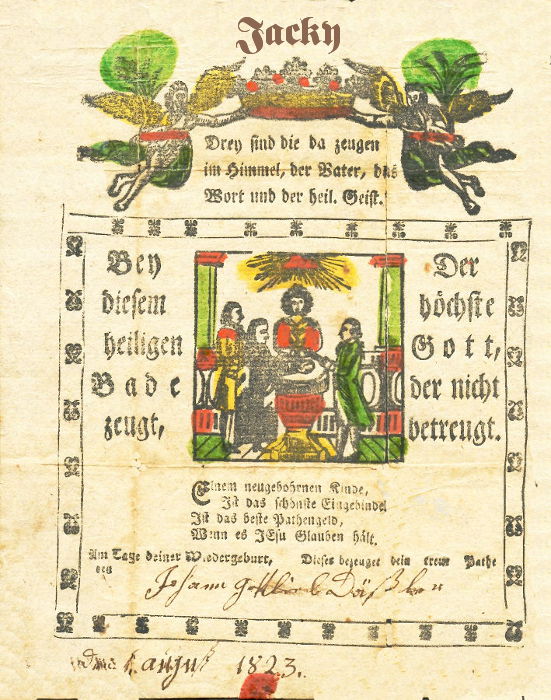 Jacky
Drey sind die da zeugen
im Himmel, der Vater, das
Wort und der heil. Geist.
Bey
diesem
heiligen
Bade
zeugt,
Der
höchste
Gott,
der nicht
betreugt.
Einem neugebohrnen Kinde,
Ist das schönste Eingebinde!
Ist das beste Pathengeld,
Wenn es JEsu Glauben hält.
Am Tage deiner Wiedergeburt, Dieses bezeuget dein treu Pathe
den
Johann Gottlieb
1. August 1823.